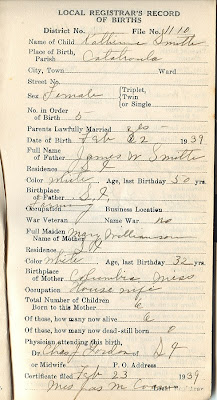 LOCAL REGISTRAR'S RECORD
OF BIRTHS
District No. File No. 1110
Name of Child Katherine Smith
Place of Birth,
Parish Catahoula
City, Town Ward
Street No.
Sex Female Triplet,
Twin
or Single
No. in Order
of Birth 5
Parents Lawfully Married yes
Date of Birth Feb 22 1939
Full Name
of Father James W Smith
Residence
Color White Age, last Birthday 50 yrs.
Birthplace
of Father
Occupation Business Location
War Veteran Name War no
Full Maiden
Name of Mother Mary Williamson
Residence
Color White Age, last Birthday 32 yrs.
Birthplace
of Mother Columbia, Miss
Occupation House wife
Total Number of Children
Born to this Mother 6
Of those, how many now alive 6
Of those, how many now dead-still born 0
Physician attending this birth,
Dr. Chas
or Midwife P. O. Address
Certificate filed Feb 23 1939
Mrs Jas M